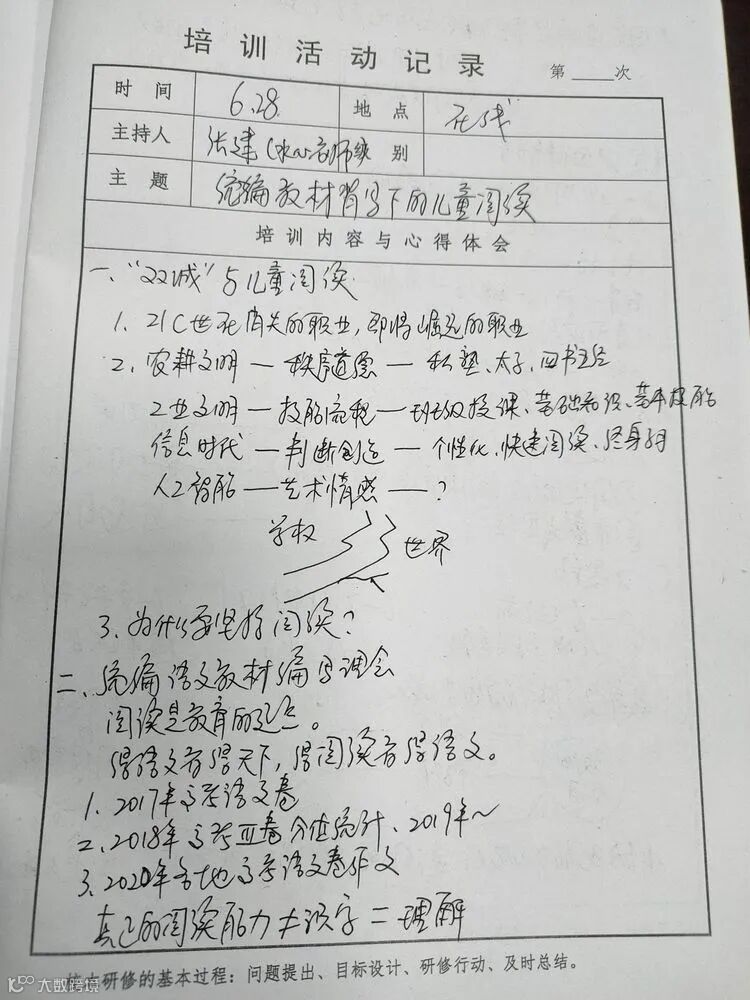 培训活动记录 第____次
时间 6.28 地点 在线
主持人 张建 老师 级别
主题 统编教材背景下的儿童阅读
培训内容与心得体会
一、“双减”与儿童阅读
1. 21C世纪消失的职业,即将崛起的职业
2、农耕文明—秩序道德—私塾、太子、四书五经
工业文明—技能流程—班级授课、基础知识、基本技能
信息时代—判断创造—个性化、快速阅读、终身
人工智能—艺术情感—?
学校 世界
3、为什么要坚持阅读?
二、统编语文教材编写理念
阅读是教育的起点。
得语文者得天下,得阅读者得语文。
1. 2017年高考语文卷
2、2018年高考II卷分值统计、2019年~
3、2020年各地高考语文卷作文
真正的阅读能力≠识字=理解
研修的基本过程:问题提出、目标设计、研修行动、及时总结。
大数跨境